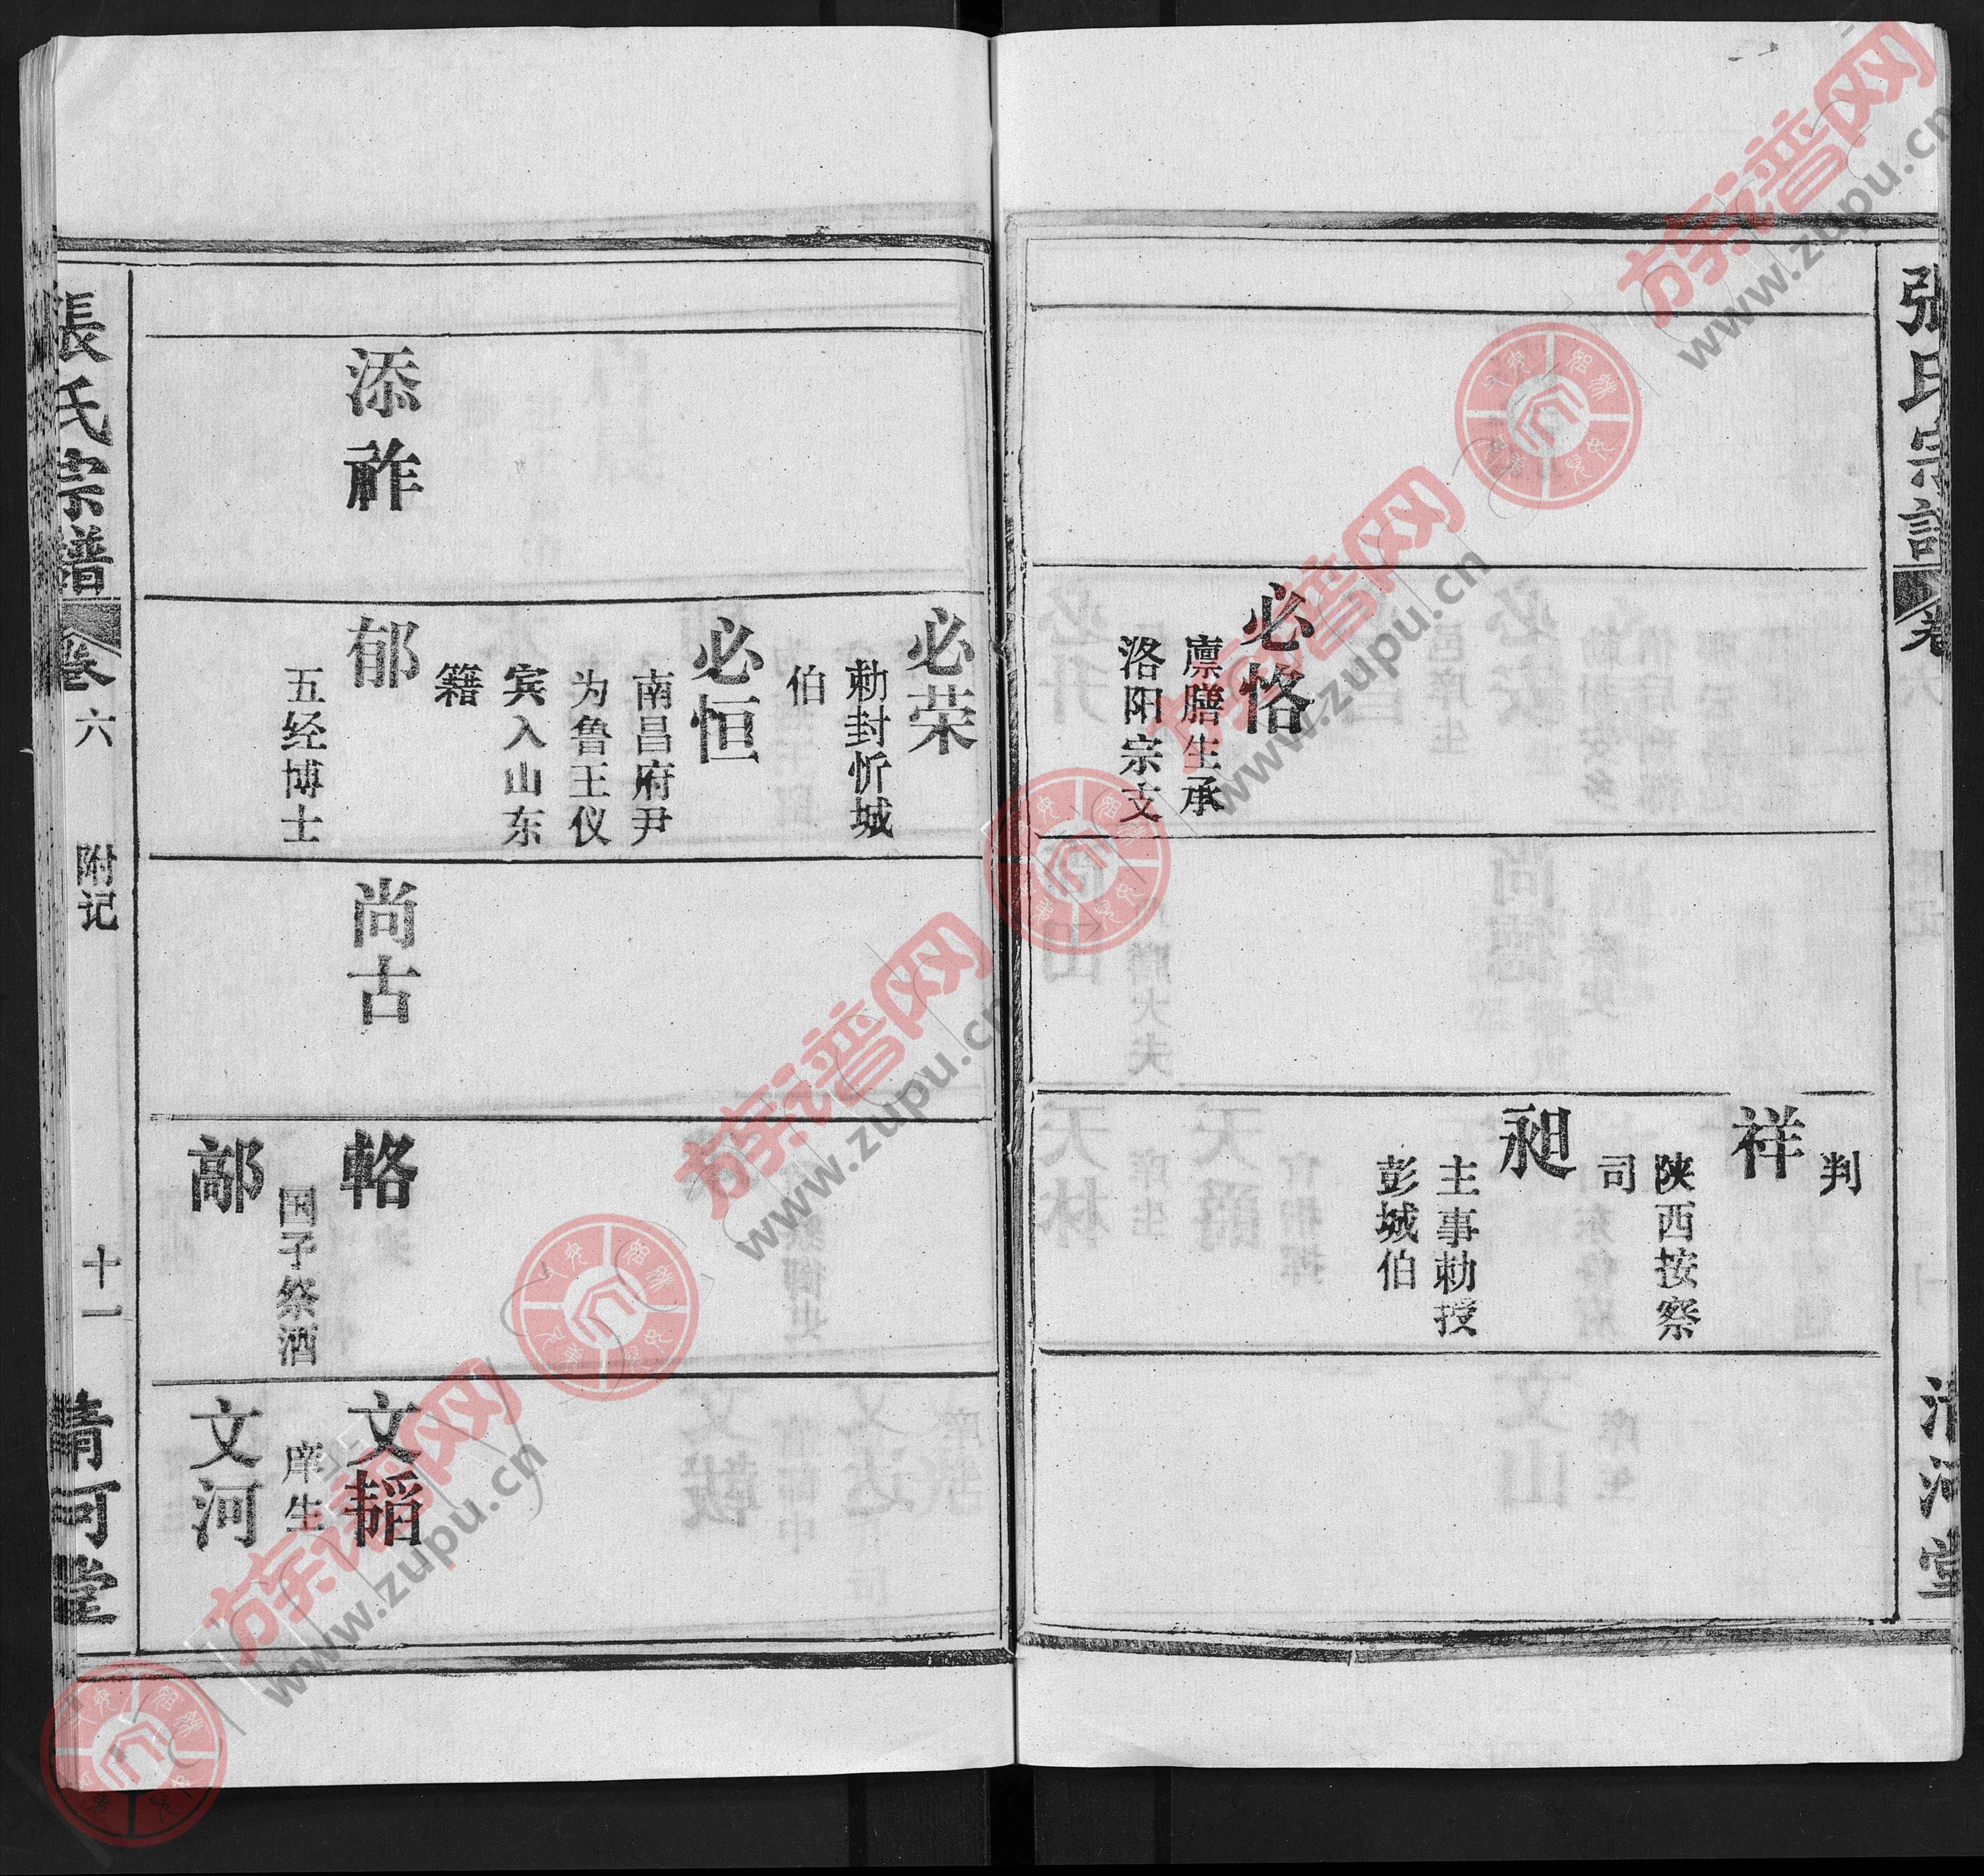 張氏宗譜
卷
清河堂
必恪
廪膳生承
洛阳宗支
判
祥
陕西按察
司
昶
主事勅授
彭城伯
添祚
必荣
勅封忻城
伯
必恒
南昌府尹
为鲁王仪
宾入山东
籍
郁
五经博士
尚古
輅
国子祭酒
鄗
文韬
庠生
文河
張氏宗譜
卷六
附记
十一
清河堂
族谱网
www.zupu.cn
族谱网
www.zupu.cn
族谱网
www.zupu.cn
族谱网
www.zupu.cn